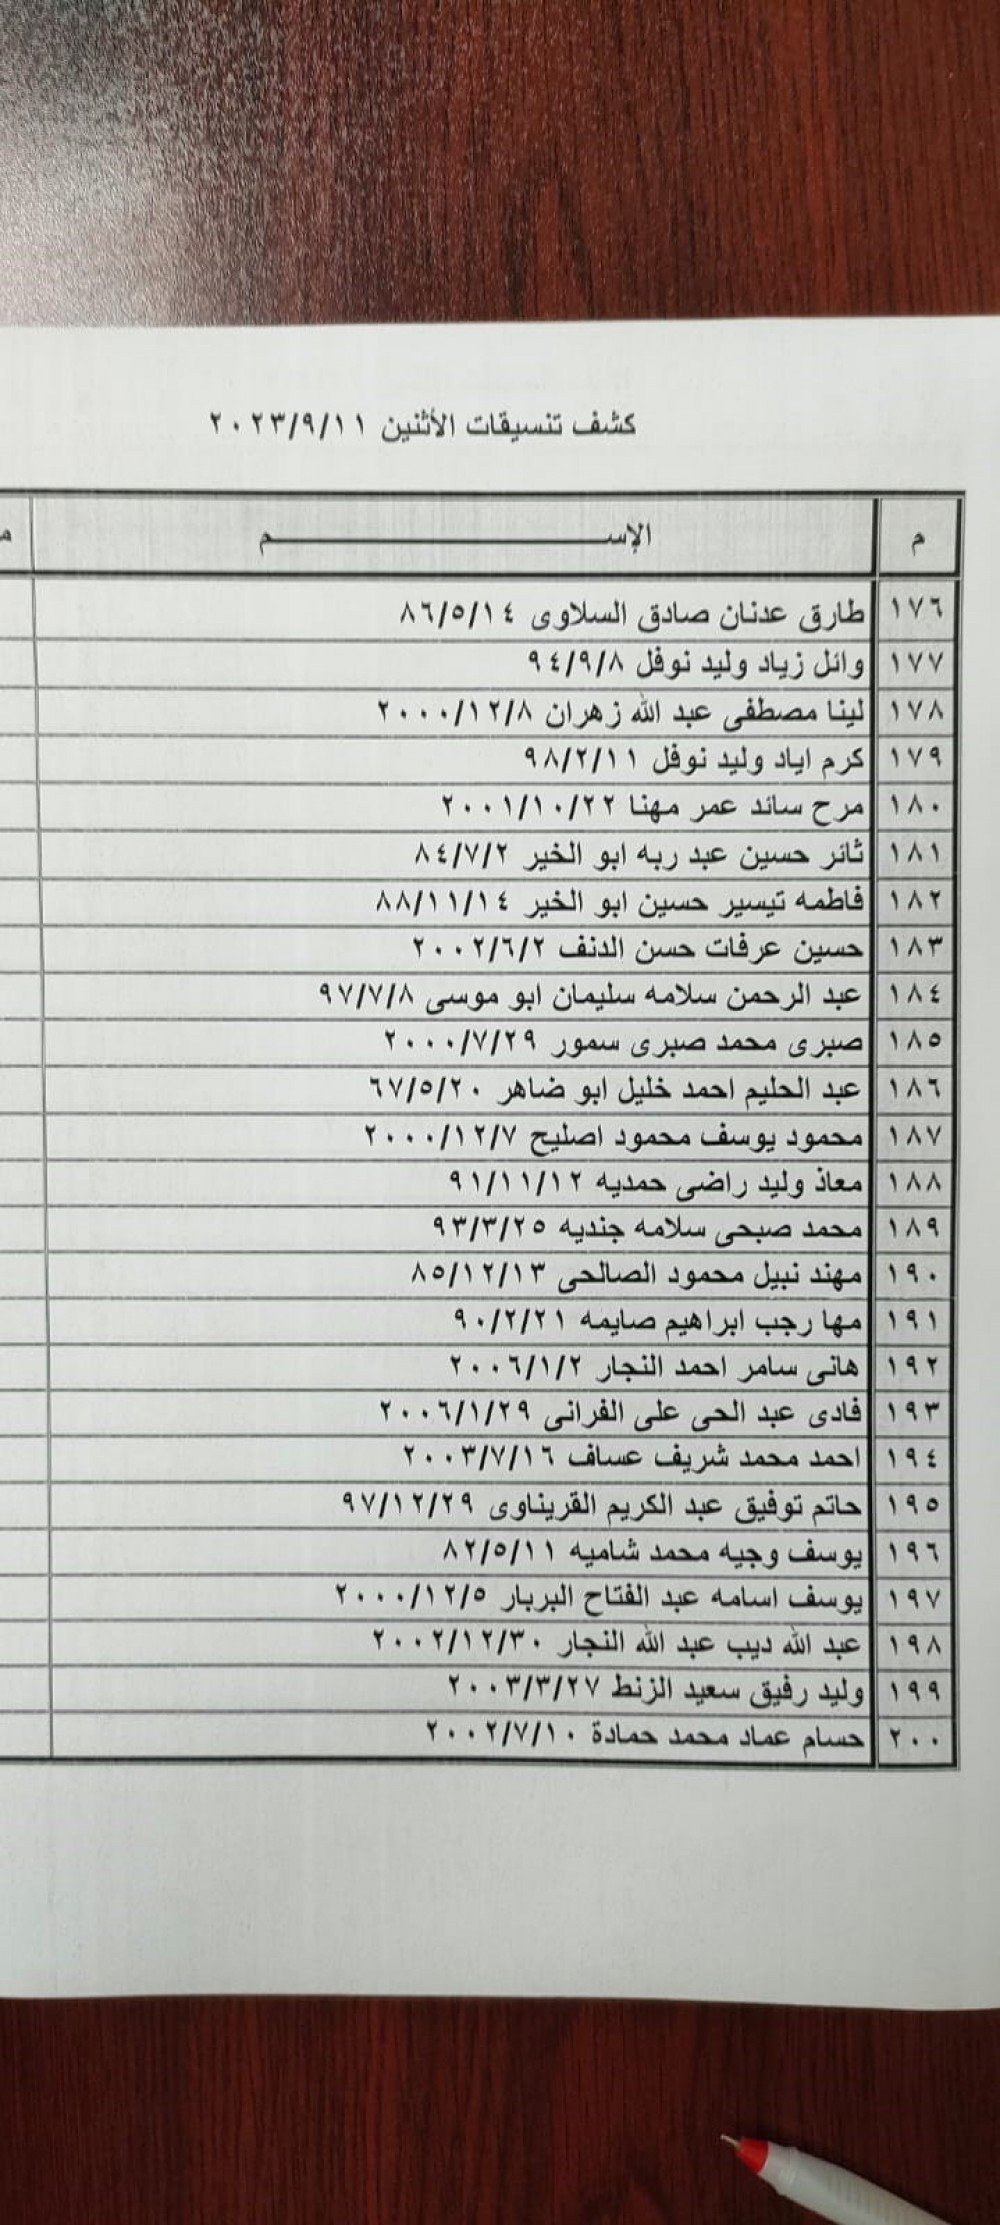 كشف تنسيقات الأثنين ٢٠٢٣/٩/١١
م الإســـــــــــــــــــــــــــــم م
١٧٦ طارق عدنان صادق السلاوى ٨٦/٥/١٤
١٧٧ وائل زياد وليد نوفل ٩٤/٩/٨
١٧٨ لينا مصطفى عبد الله زهران ٢٠٠٠/١٢/٨
١٧٩ كرم اياد وليد نوفل ٩٨/٢/١١
١٨٠ مرح سائد عمر مهنا ٢٠٠١/١٠/٢٢
١٨١ ثائر حسين عبد ربه ابو الخير ٨٤/٧/٢
١٨٢ فاطمه تيسير حسين ابو الخير ٨٨/١١/١٤
١٨٣ حسين عرفات حسن الدنف ٢٠٠٢/٦/٢
١٨٤ عبد الرحمن سلامه سليمان ابو موسى ٩٧/٧/٨
١٨٥ صبرى محمد صبرى سمور ٢٠٠٠/٧/٢٩
١٨٦ عبد الحليم احمد خليل ابو ضاهر ٦٧/٥/٢٠
١٨٧ محمود يوسف محمود اصليح ٢٠٠٠/١٢/٧
١٨٨ معاذ وليد راضى حمديه ٩١/١١/١٢
١٨٩ محمد صبحى سلامه جنديه ٩٣/٣/٢٥
١٩٠ مهند نبيل محمود الصالحى ٨٥/١٢/١٣
١٩١ مها رجب ابراهيم صايمه ٩٠/٢/٢١
١٩٢ هانى سامر احمد النجار ٢٠٠٦/١/٢
١٩٣ فادى عبد الحى على الفرانى ٢٠٠٦/١/٢٩
١٩٤ احمد محمد شريف عساف ٢٠٠٣/٧/١٦
١٩٥ حاتم توفيق عبد الكريم القريناوى ٩٧/١٢/٢٩
١٩٦ يوسف وجيه محمد شاميه ٨٢/٥/١١
١٩٧ يوسف اسامه عبد الفتاح البربار ٢٠٠٠/١٢/٥
١٩٨ عبد الله ديب عبد الله النجار ٢٠٠٢/١٢/٣٠
١٩٩ وليد رفيق سعيد الزنط ٢٠٠٣/٣/٢٧
٢٠٠ حسام عماد محمد حمادة ٢٠٠٢/٧/١٠